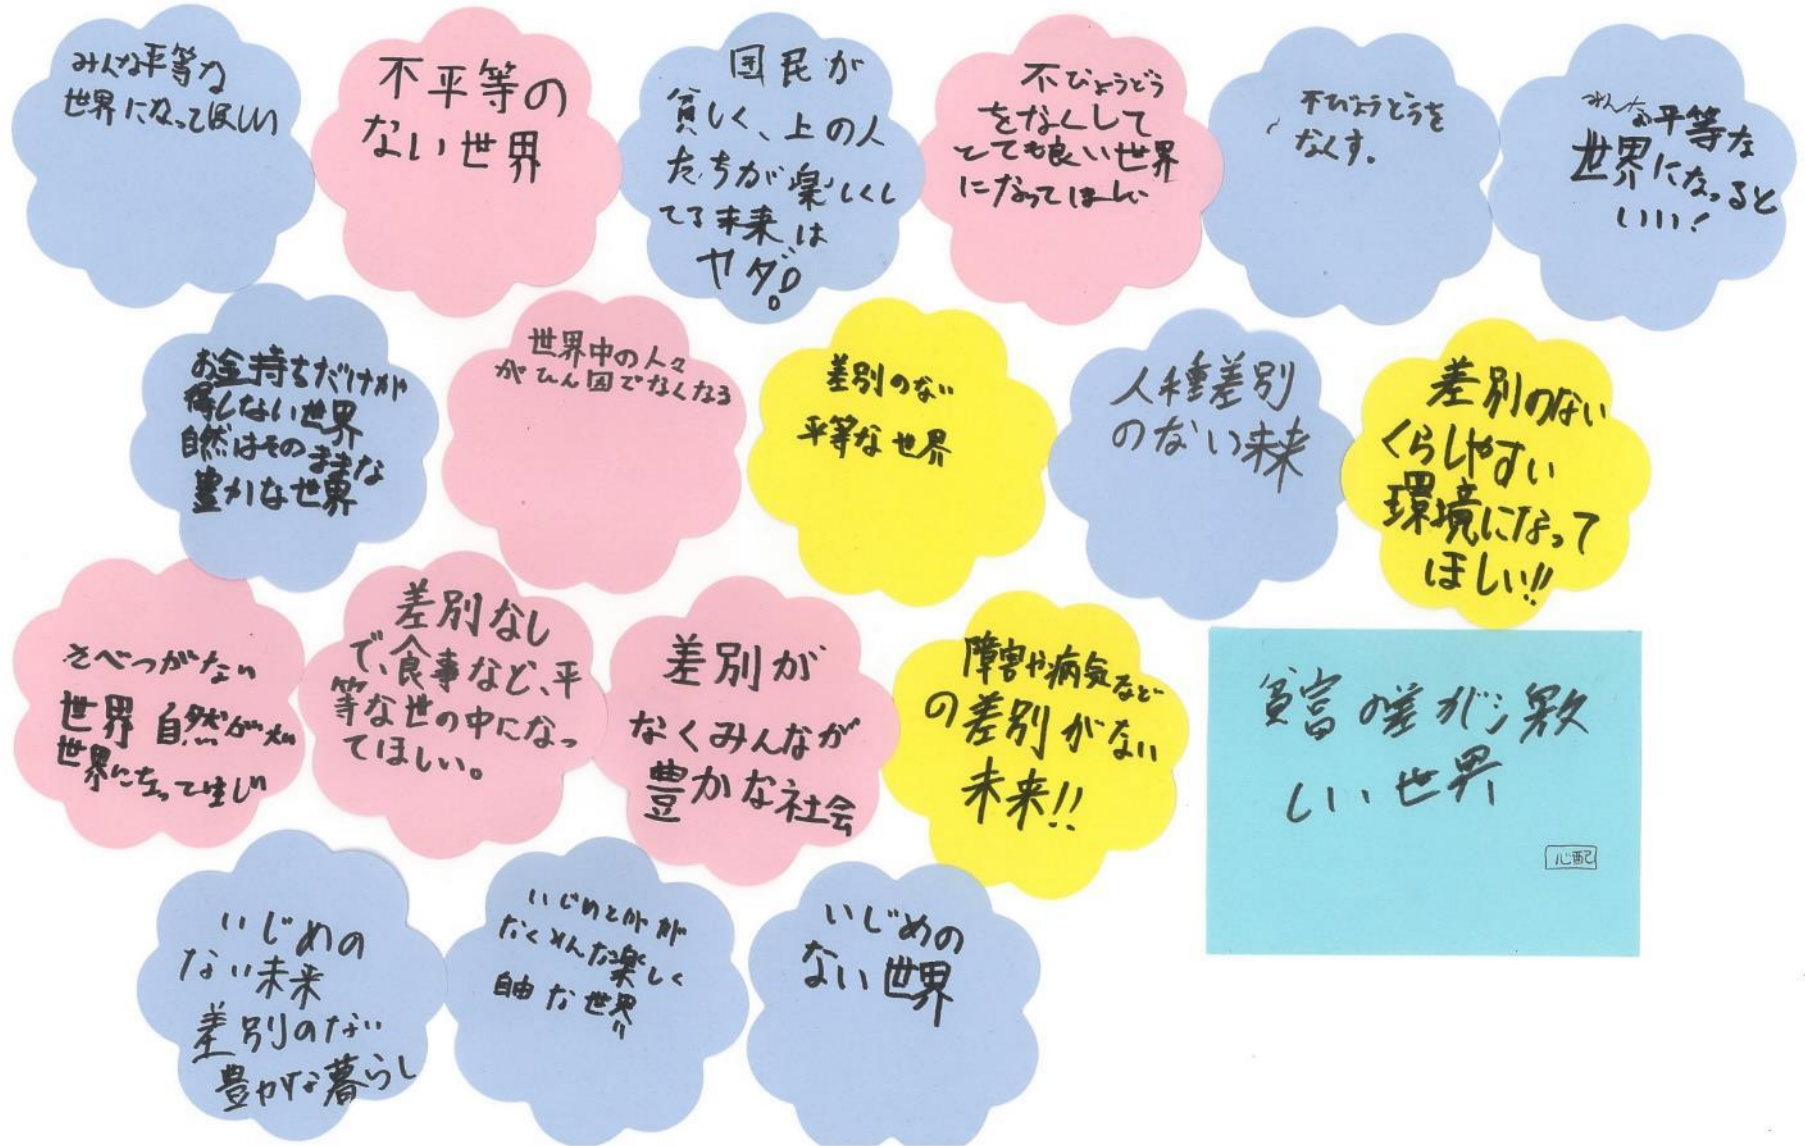 みんな平等な
世界になってほしい
不平等の
ない世界
国民が
貧しく、上の人
たちが楽しくし
てる未来は
ヤダ!
不びょうどう
をなくして
とても良い世界
になってほしい
不びょうどうを
なくす。
みんな平等な
世界になっると
いい!
お金持ちだけが
得しない世界
自然はそのままな
豊かな世界
世界中の人々
がひん困でなくなる
差別のない
平等な世界
人種差別
のない未来
差別のない
くらしやすい
環境になって
ほしい!!
さべつがない
世界 自然が
世界になってほしい
差別なし
で、食事など、平
等な世の中になっ
てほしい。
差別が
なくみんなが
豊かな社会
障害や病気など
の差別がない
未来!!
貧富の差が激
しい世界
心配
いじめの
ない未来
差別のない
豊かな暮らし
いじめとかが
なくみんな楽しく
自由な世界
いじめの
ない世界